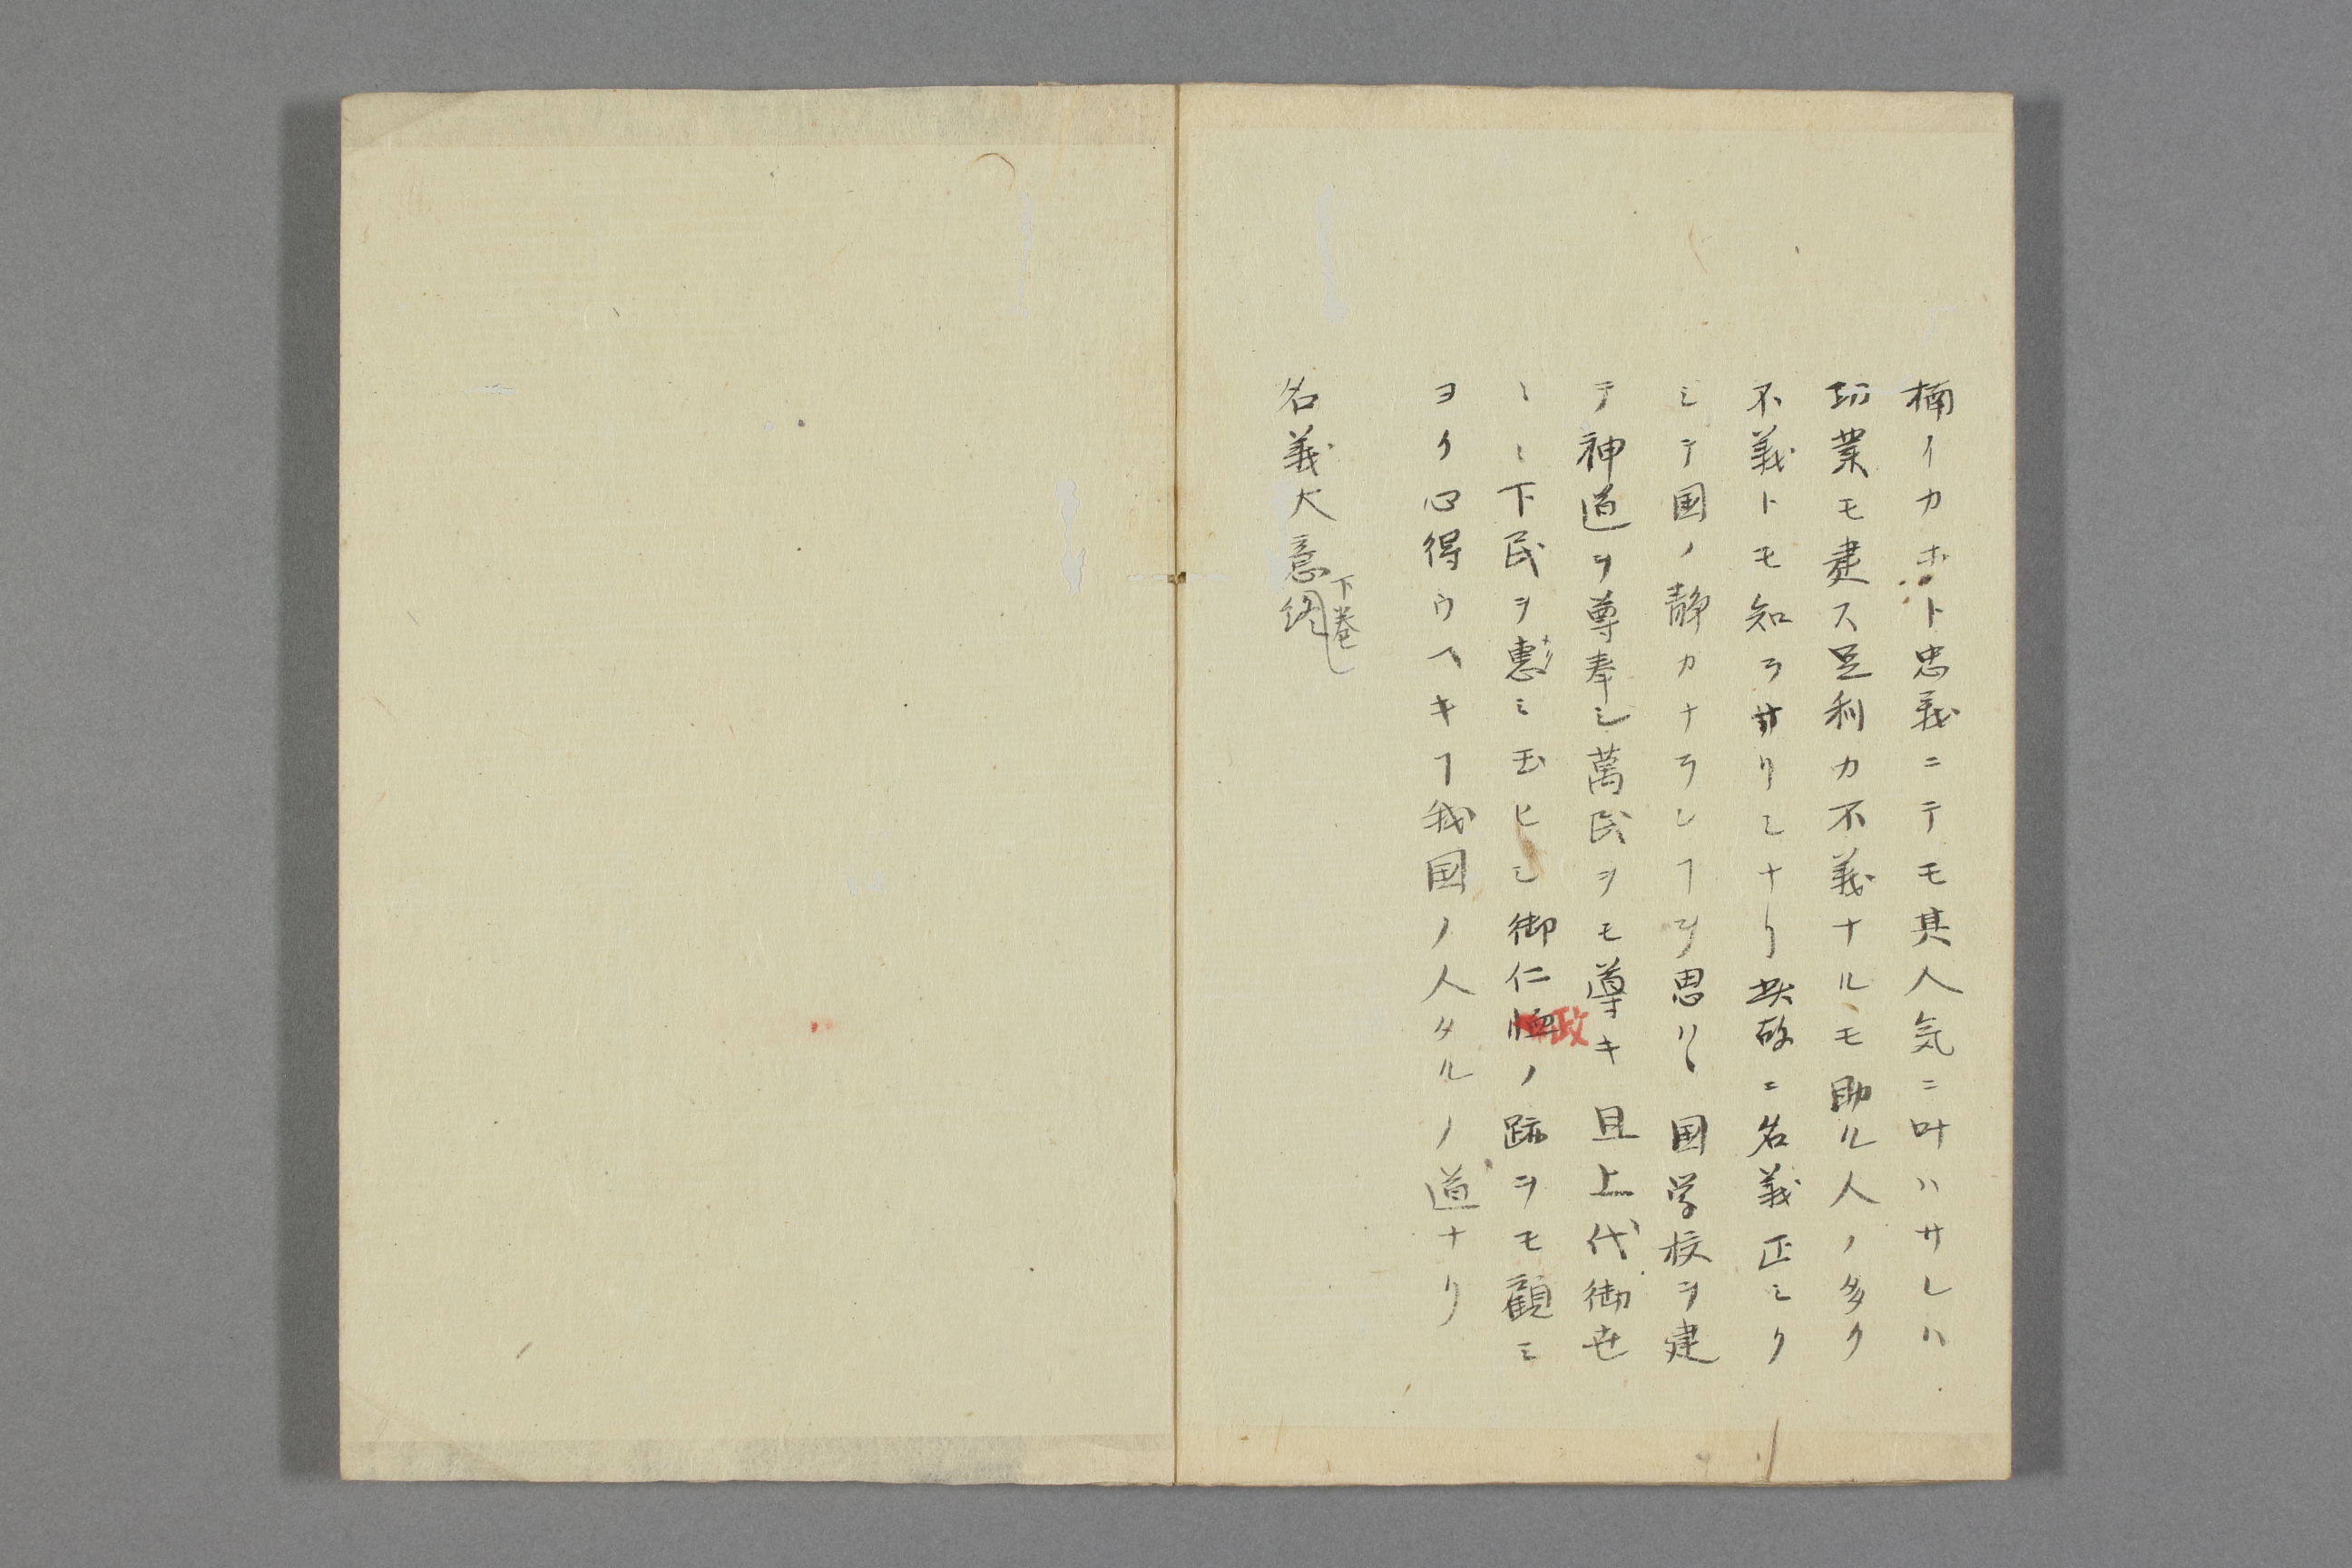 楠イカホト忠義ニテモ其人気ニ叶ハサレハ
功業モ建ス足利カ不義ナルモ助ル人ノ多ク
不義トモ知ラサリシナリ故ニ名義正シク
シテ国ノ静カナランヿヲ思ハヽ国学校ヲ建
テ神道ヲ尊奉シ萬民ヲモ導キ且上代御世
〻〻下民ヲ惠ミ玉ヒシ御仁政ノ跡ヲモ顧ミ
ヨク心得ウヘキヿ我国ノ人タルノ道ナリ
名義大意下巻終